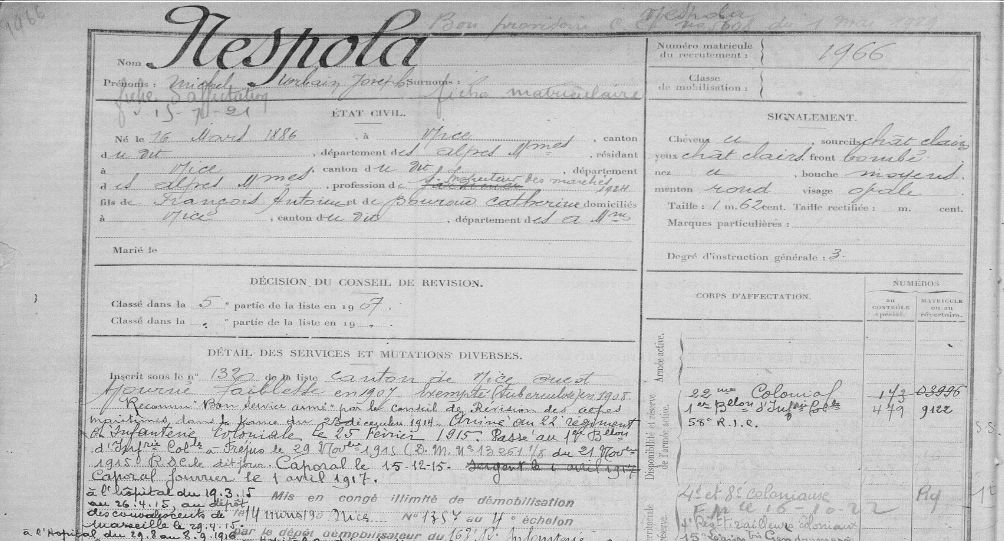 1966
Bon provisoire
Nespola
Nom
Nespola
Prénoms : Michel Urbain Joseph Surnoms :
fiche d'affectation
fiche matriculaire
15-
21
ÉTAT CIVIL.
Né le 16 Mars 1886, à Nice, canton
du dit, département des Alpes Mmes, résidant
à Nice, canton du dit, département
des Alpes Mmes, profession de S. Inspecteur des marchés
1924
fils de François Antoine et de Catherine domiciliés
à Nice, canton du dit, département des A Mm
Marié le
DÉCISION DU CONSEIL DE REVISION.
Classé dans la 5e partie de la liste en 1907.
Classé dans la e partie de la liste en 19
DÉTAIL DES SERVICES ET MUTATIONS DIVERSES.
Inscrit sous le n° 132 de la liste canton de Nice ouest
Ajourné faiblesse en 1907 exempté tuberculose en 1908
Reconnu "Bon service armé" par le conseil de Revision des alpes
maritimes dans la séance du décembre 1914. Arrivé au 22e régiment
d'Infanterie Coloniale le 25 Février 1915. Passé au 1er Bllon
d'Infrie Colle à Fréjus le 29 Novbre 1915 (D.M. N° 13261 1/8 du 21 Novbre
1915). R.D.C. le dit jour. Caporal le 15-12-15. Sergent le 1 avril 1917
Caporal fourrier le 1 avril 1917.
à l'hôpital du 19.3.15
au 26.4.15, au dépôt
des convalescents de
Marseille le 29.4.15.
à l'Hôpital du 29.8 au 8.9.1916
Mis en congé illimité de démobilisation
le 14 mars 19 Nice N° 1757 au 4e échelon
par le dépôt démobilisateur du
Numéro matricule
du recrutement :
1966
Classe
de mobilisation :
SIGNALEMENT.
Cheveux u sourcils chât clairs
yeux chât clairs, front bombé
nez u, bouche moyens
menton rond visage ovale
Taille : 1 m. 62 cent. Taille rectifiée : m. cent.
Marques particulières :
Degré d'instruction générale : 3.
CORPS D'AFFECTATION.
NUMÉROS
au
contrôle
spécial.
MATRICULE
ou au
répertoire.
Armée active.
Disponibilité et réserve
de l'armée active.
22me Colonial 173 03996
1er Bllon d'Infie Cole 479 9122
R.I.C.
S.S.
4e et 8e coloniaux
16-10-22
4e Rég. tirailleurs coloniaux
15e